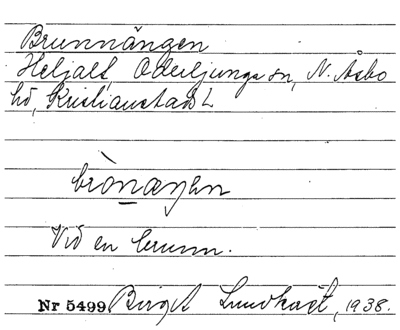 Brunnängen
Heljalt, Oderljunga sn, N. Åsbo
hd, Kristianstads L
brònæŋən
Vid en brunn.
Nr 5499 Birgit Lundkvist, 1938.